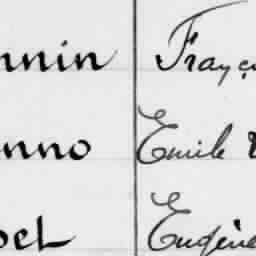 nnin Franç
nno Emile
bel Eugène